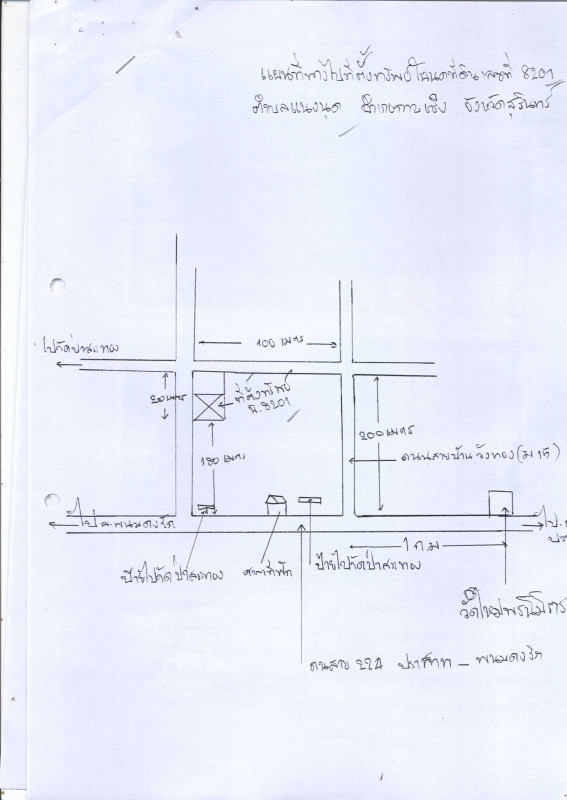 แผนที่ทางไปที่ตั้งทรัพย์ โฉนดที่ดินเลขที่ 8201
ตำบลแนงมุด อำเภอกาบเชิง จังหวัดสุรินทร์
100 เมตร
ไปวัดป่าสะทอง
20 เมตร
ที่ตั้งทรัพย์
ฉ.8201
200 เมตร
180 เมตร
ถนนสายบ้านวังทอง (ม 15)
ไป อ.พนมดงรัก
ไป.
1 กม
ป้ายไปวัดป่าสะทอง
ศาลาที่พัก
ป้ายไปวัดป่าสะทอง
วัดใหม่
ถนสาย 224 ปราสาท - พนมดงรัก